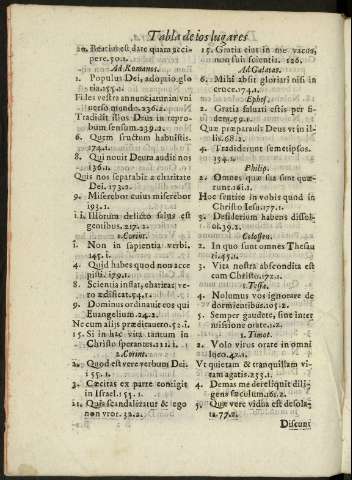 Tabla de los lugares
20. Beatius est dare quam acci
pere. 50.1.
Ad Romanos.
1. Populus Dei, adoptio, glo
ria. 155.1.
Fides vestra annunciatur in vni
uerso mondo. 236.2.
Tradidit illos Deus in repro
bum sensum. 239.2.
6. Quem fructum habuistis.
174.1.
8. Qui nouit Deura audit nos
136.1.
Quis nos separabit a charitate
Dei. 173.2.
9. Miserebor cuius misereor
193.1.
11. Illorum delicto salus est
gentibus. 217.2.
1. Corint.
1. Non in sapientia verbi.
145. 1.
4. Quid habes quod non acce
pisti. 179.1.
8. Scientia inflat, charitas ve-
ro ædificat. 54.1.
9. Dominus ordinauit eos qui
Euangelium. 24.2.
Ne cum alijs prædicauero. 52.1.
15. Si in hac vita tantum in
Christo sperantes. 111.1.
2. Corint.
2. Quod est vere verbum Dei.
155.1.
3. Cæcitas ex parte contigit
in Israel. 153.1.
11. Quis scandalizatur & ego
non vror. 32.2.
15. Gratia eius in me vacua,
non fuit scientia. 126.
Ad Galatas.
6. Mihi absit gloriari nisi in
cruce. 174.1.
Ephes.
2. Gratia saluati estis per fi-
dem. 59.1.
Quæ præparauit Deus vt in il-
lis. 68.2.
4. Tradiderunt semetipsos.
394.1.
Philip.
2. Omnes quæ sua sunt quæ
runt. 161.1.
Hoc sentite in vobis quod in
Christo Iesu. 177.1.
3. Desiderium habens dissol-
ui. 39.2.
Colossen.
2. In quo sunt omnes Thesau
ri. 45.1.
3. Vita nostra abscondita est
cum Christo. 172.1.
1. Tessa.
4. Nolumus vos ignorare de
dormientibus. 105.2.
5. Semper gaudete, sine inter
missione orate. 1.2.
1. Timot.
2. Volo viros orate in omni
loco. 42.1.
Vt quietam & tranquillam vi-
tam agatis. 233.1.
4. Demas me dereliquit dili-
gens sæculum. 161.2.
5. Quæ vere vidua est desola-
ta. 77.2.
Discunt